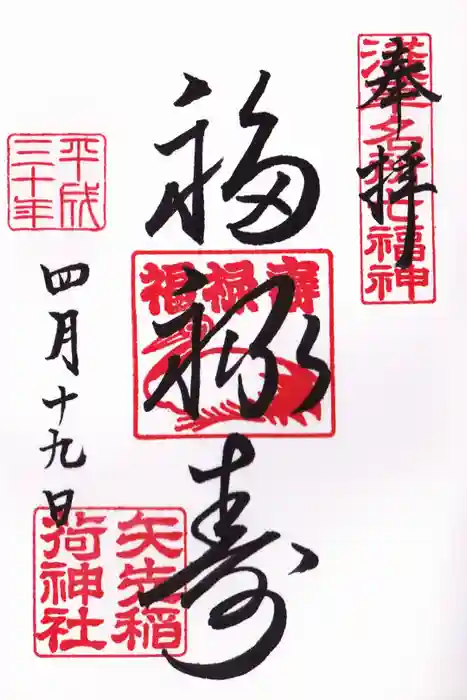 奉拝
浅草名所七福神
福禄寿
福禄寿
平成
三十年
四月十九日
矢先稲
荷神社